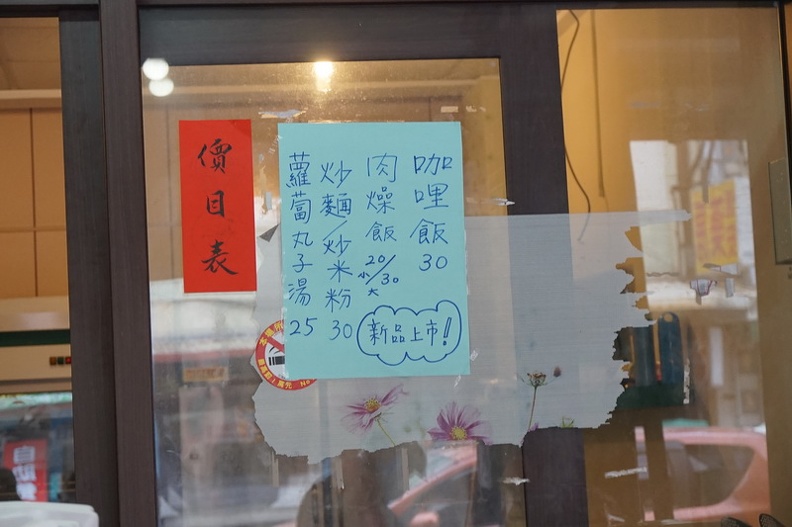 價目表
咖哩飯 30
肉燥飯 20/30
小 大
炒麵/炒米粉 30
蘿蔔丸子湯 25
新品上市!